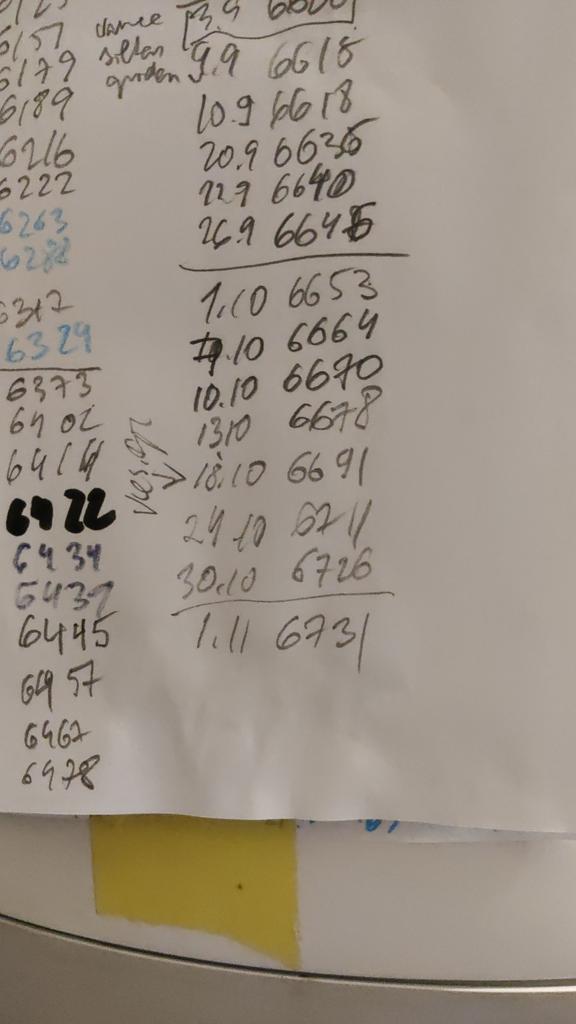 6151
6179
6189
6216
6222
6263
6288
6317
6324
6373
6402
6414
6422
6434
6437
6445
6457
6467
6478
3.9 6600
9.9 6615
10.9 6618
20.9 6636
22.9 6640
26.9 6645
1.10 6653
9.10 6664
10.10 6670
13.10 6678
18.10 6691
24.10 6711
30.10 6726
1.11 6731